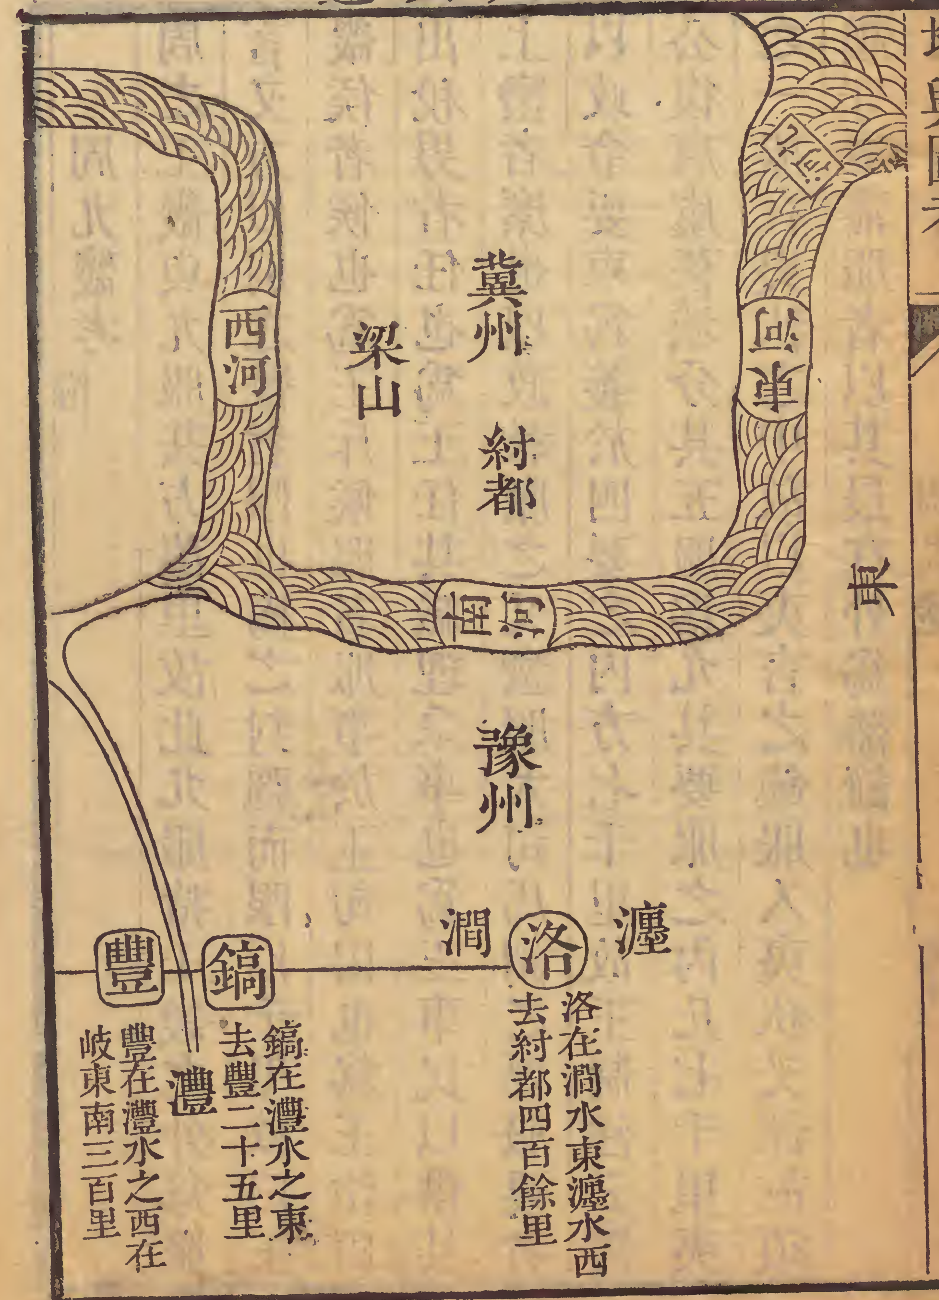 北河
東河
東
冀州
紂都
梁山
西河
南河
豫州
瀍
洛
洛在澗水東瀍水西
去紂都四百餘里
澗
鎬
鎬在灃水之東
去豐二十五里
灃
豐
豐在灃水之西在
岐東南三百里